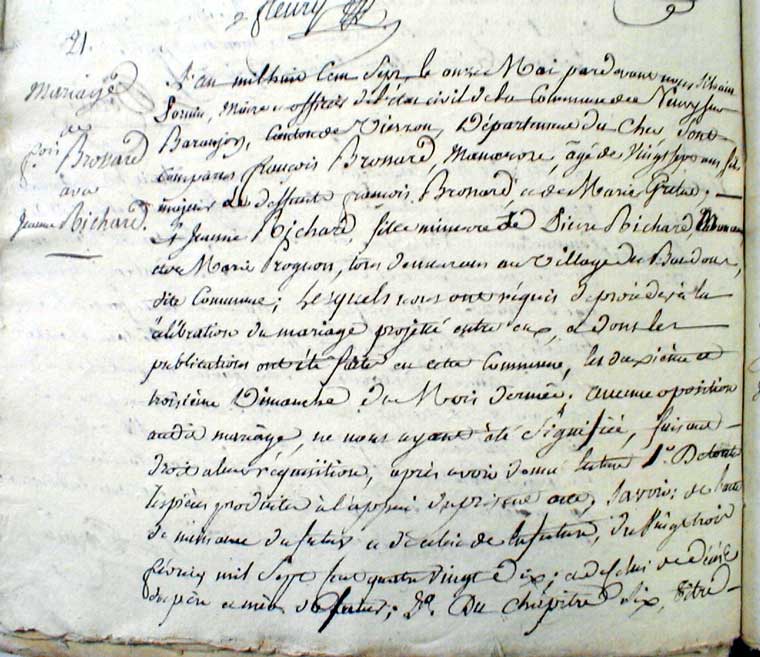 fleury
21.
Mariage
de
fcois Brossard
avec
Jeanne Richard.
L'an mil huit Cent Sept le onze Mai pardevant nous Silvain
Sornin, Maire et officier de l'état civil de la Commune de Neuvy sur
Baranjon, Canton de Vierzon, Département du Cher Sont
comparus françois Brossard, Manœuvre, âgé de Vingt Sept ans fils
majeur de deffunt françois Brossard, et de Marie
Et Jeanne Richard, fille mineure de Pierre Richard
et de Marie Rognon, tous demeurans au Village du
dite Commune; Lesquels nous ont réquis de procéder à la
célébration du mariage projetté entre eux, et dont les
publications ont été faites en cette Commune, les deuxième et
troisième Dimanche du Mois dernier. aucune oposition
audit mariage, ne nous ayant été Signifiée, faisant
droit à leur réquisition, après avoir donné lecture 1.o De toutes
les pièces produites à l'apui du présent acte, Savoir: de l'acte
de naissance du futur et de celui de la future, du Vingt trois
février mil Sept Cent quatre vingt dix; et de celui de décès
du père et mère du futur; 2.o Du Chapitre dix, titre